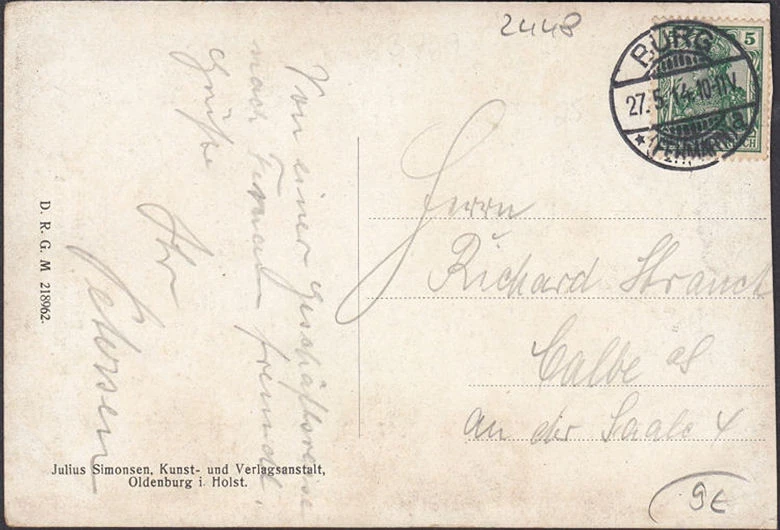 2448
5
BURG
27.5.14.10-11V.
* (FEHMARN) a
Von einer Geschäftsreise
nach Femarn freundl.
Grüße
Ihr
Petersen
Herrn
Richard Strauch
Calbe a/S
an der Saale
D. R. G. M 218962.
Julius Simonsen, Kunst- und Verlagsanstalt,
Oldenburg i. Holst.
9€